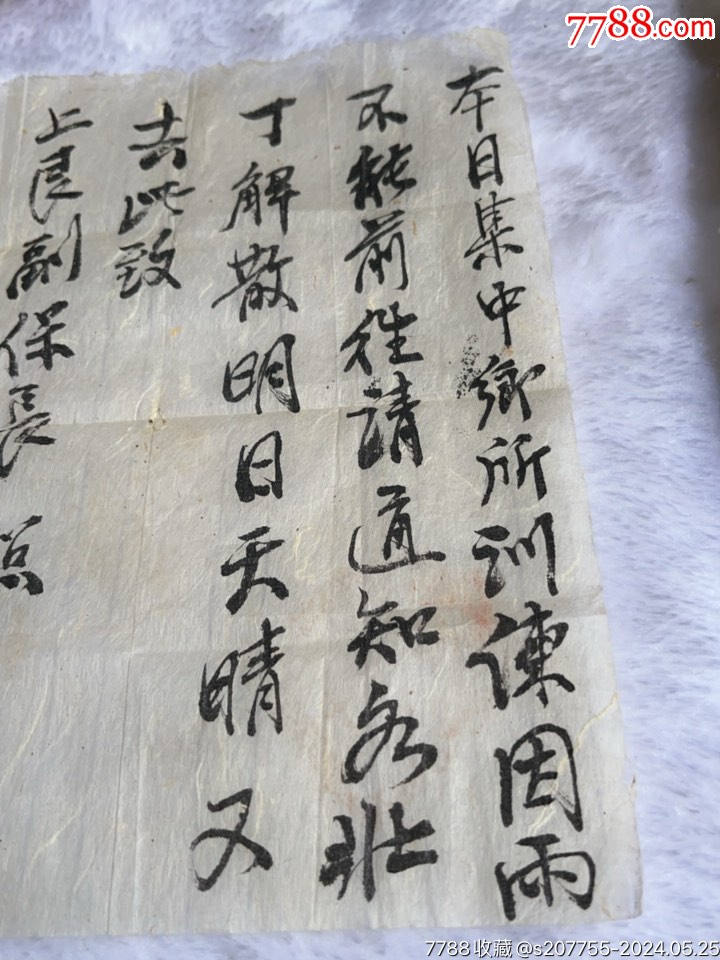 7788.com
本日集中鄉所訓練因雨
不能前往請通知各壯
丁解散明日天晴又
去此致
上良副保長
7788收藏@s207755-2024.05.25